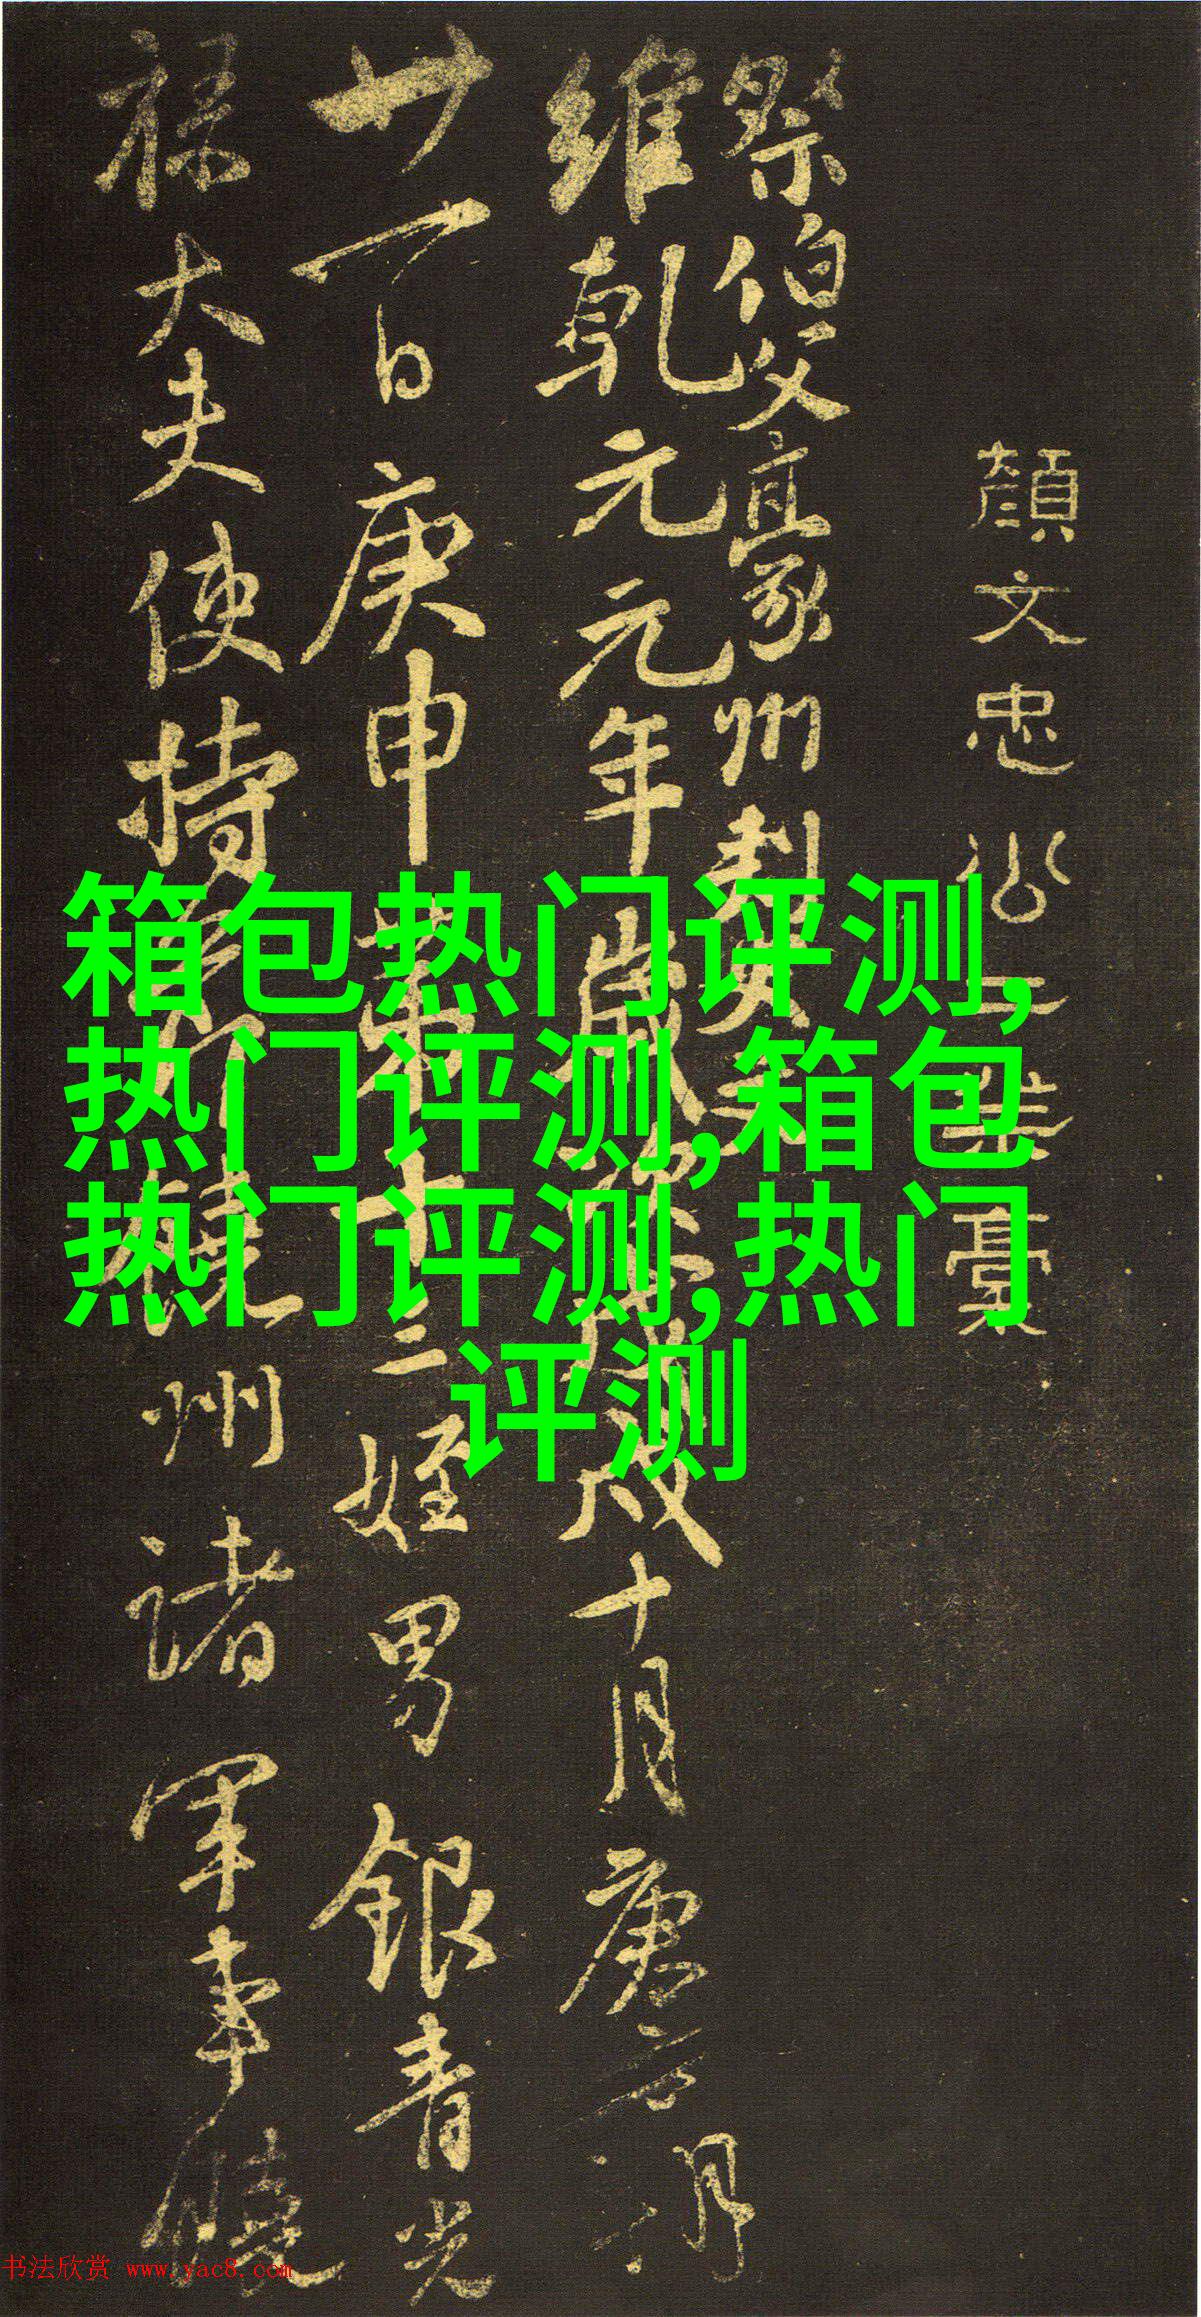 顏文忠公
祭伯父豪州刺史
維乾元元年歲次戊戌十月庚寅朔
廿一日庚申第十三姪男銀青光
祿大夫使持節饒州諸軍事饒
箱包热门评测,
热门评测,箱包
热门评测,热门
评测
书法欣赏 www.yac8.com